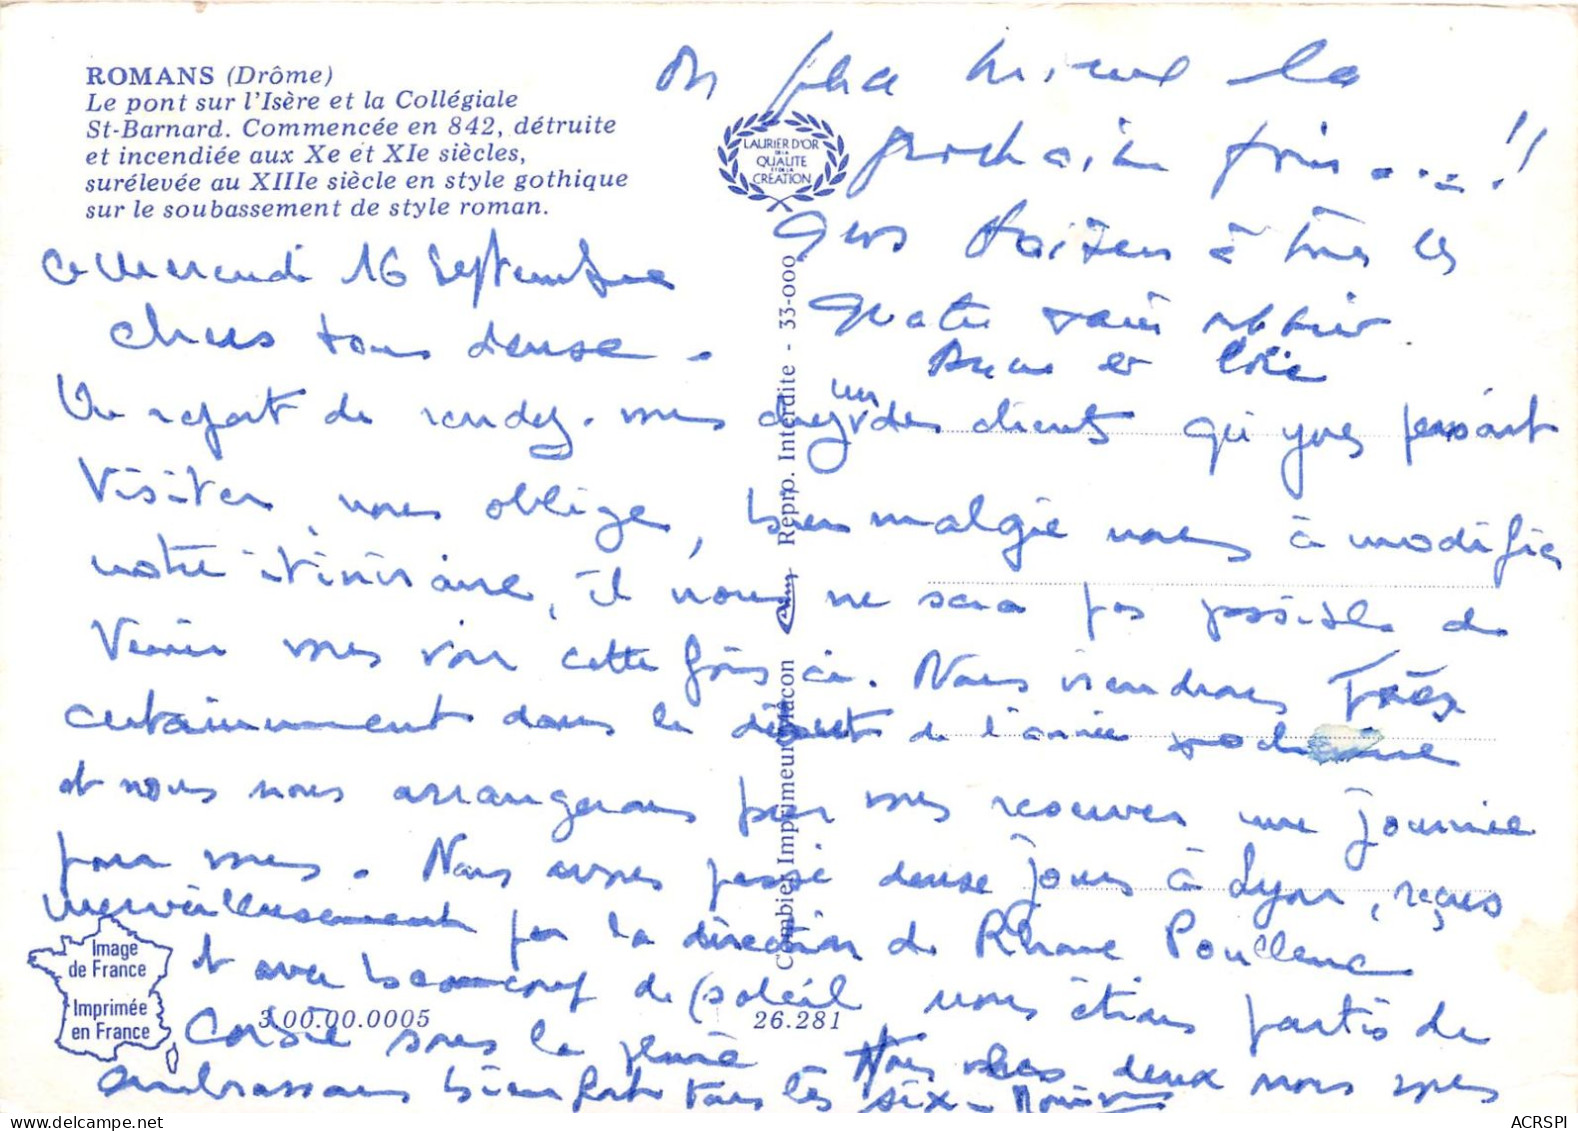 ROMANS (Drôme)
Le pont sur l'Isère et la Collégiale
St-Barnard. Commencée en 842, détruite
et incendiée aux Xe et XIe siècles,
surélevée au XIIIe siècle en style gothique
sur le soubassement de style roman.
LAURIER D'OR
DE LA
QUALITE
ET DE LA
CRÉATION
ce mercredi 16 Septembre
chers tous deux.
Un report de rendez-vous chez un des clients qu'Yves pensait
visiter, nous oblige, bien malgré nous à modifier
notre itinéraire, il nous ne sera pas possible de
venir vous voir cette fois ci. Nous viendrons Très
certainement dans le début de l'année prochaine
et nous nous arrangerons pour vous réserver une journée
pour vous. Nous avons passé deux jours à Lyon, reçus
merveilleusement par la direction de Rhone Poullenc
et avec beaucoup de soleil nous étions partis de
Corse sous la pluie Nous deux nous vous
embrassons bien fort tous les six.
on fera mieux la
prochaine fois....!!
Gros baisers à tous les
quatre sans oublier
et
Combier Imprimeur Mâcon
Repro. Interdite - 33-000
Image
de France
Imprimée
en France
3.00.00.0005
26.281
ACRSPI